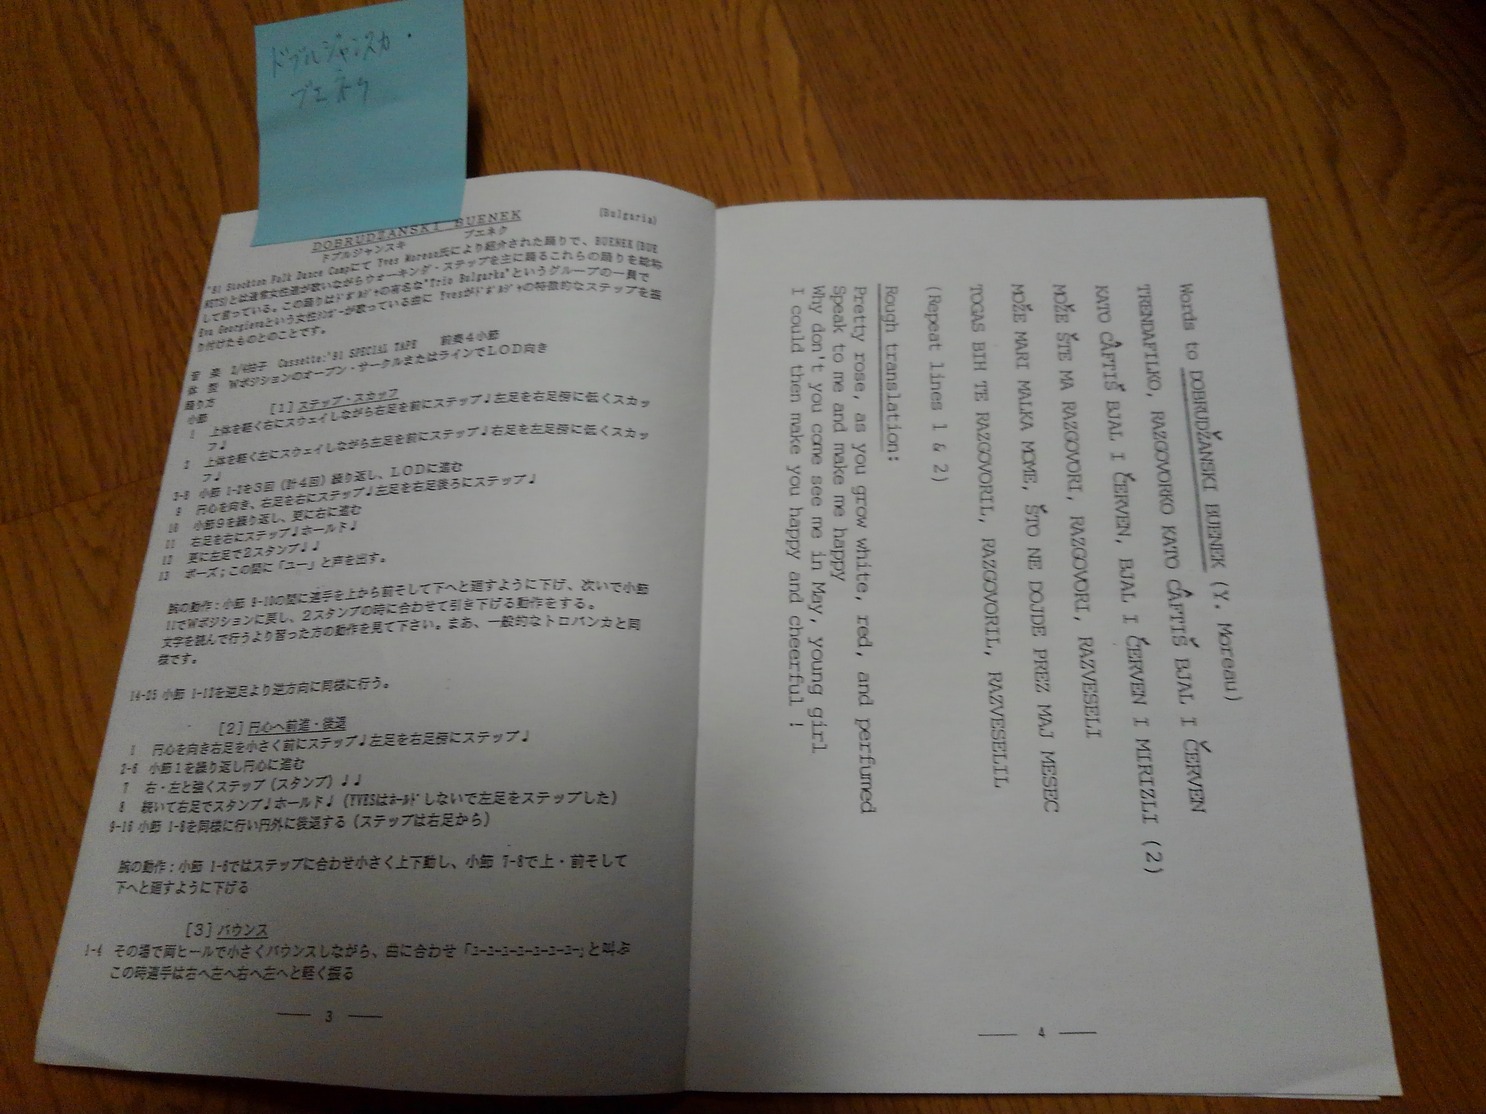 ドブルジャンスカ・
ブエネク
DOBRUDŽANSKI BUENEK (Bulgaria)
ドブルジャンスキ ブエネク
'81 Stockton Folk Dance Campにて Yves Moreau氏により紹介された踊りで、BUENEK(BUE
NETS)とは通常女性達が歌いながらウオーキング・ステップを主に踊るこれらの踊りを総称
して言っている。この踊りはﾄﾞﾎﾞﾙｼﾞｬの有名な"Trio Bulgarka"というグループの一員で
Eva Georgievaという女性ｼﾝｶﾞｰが歌っている曲に Yvesがﾄﾞﾎﾞﾙｼﾞｬの特徴的なステップを振
り付けたものとのことです。
音 楽 2/4拍子 Cassette:'81 SPECIAL TAPE 前奏4小節
体 型 Wポジションのオープン・サークルまたはラインでLOD向き
踊り方
小節 [1] ステップ・スカッフ
1 上体を軽く右にスウェイしながら右足を前にステップ♩左足を右足傍に低くスカッ
フ♩
2 上体を軽く左にスウェイしながら左足を前にステップ♩右足を左足傍に低くスカッ
フ♩
3-8 小節 1-2を3回(計4回)繰り返し、LODに進む
9 円心を向き、右足を右にステップ♩左足を右足後ろにステップ♩
10 小節9を繰り返し、更に右に進む
11 右足を右にステップ♩ホールド♩
12 更に左足で2スタンプ♩♩
13 ポーズ;この間に「ユー」と声を出す。
腕の動作:小節 9-10の間に連手を上から前そして下へと廻すように下げ、次いで小節
11でWポジションに戻し、2スタンプの時に合わせて引き下げる動作をする。
文字を読んで行うより習った方の動作を見て下さい。まあ、一般的なトロパンカと同
様です。
14-25 小節 1-12を逆足より逆方向に同様に行う。
[2] 円心へ前進・後退
1 円心を向き右足を小さく前にステップ♩左足を右足傍にステップ♩
2-6 小節1を繰り返し円心に進む
7 右・左と強くステップ(スタンプ)♩♩
8 続いて右足でスタンプ♩ホールド♩(YVESはﾎｰﾙﾄﾞしないで左足をステップした)
9-16 小節 1-8を同様に行い円外に後退する(ステップは右足から)
腕の動作:小節 1-6ではステップに合わせ小さく上下動し、小節 7-8で上・前そして
下へと廻すように下げる
[3] バウンス
1-4 その場で両ヒールで小さくバウンスしながら、曲に合わせ「ﾕｰﾕｰﾕｰﾕｰﾕｰﾕｰﾕｰ」と叫ぶ
この時連手は右へ左へ右へ左へと軽く振る
3
Words to DOBRUDŽANSKI BUENEK (Y. Moreau)
TRENDAFILKO, RAZGOVORKO KATO CÂFTIŠ BJAL I ČERVEN
KATO CÂFTIŠ BJAL I ČERVEN, BJAL I ČERVEN I MIRIZLI (2)
MOŽE ŠTE MA RAZGOVORI, RAZGOVORI, RAZVESELI
MOŽE MARI MALKA MOME, ŠTO NE DOJDE PREZ MAJ MESEC
TOGAS BIH TE RAZGOVORIL, RAZGOVORIL, RAZVESELIL
(Repeat lines 1 & 2)
Rough translation:
Pretty rose, as you grow white, red, and perfumed
Speak to me and make me happy
Why don't you come see me in May, young girl
I could then make you happy and cheerful !
4